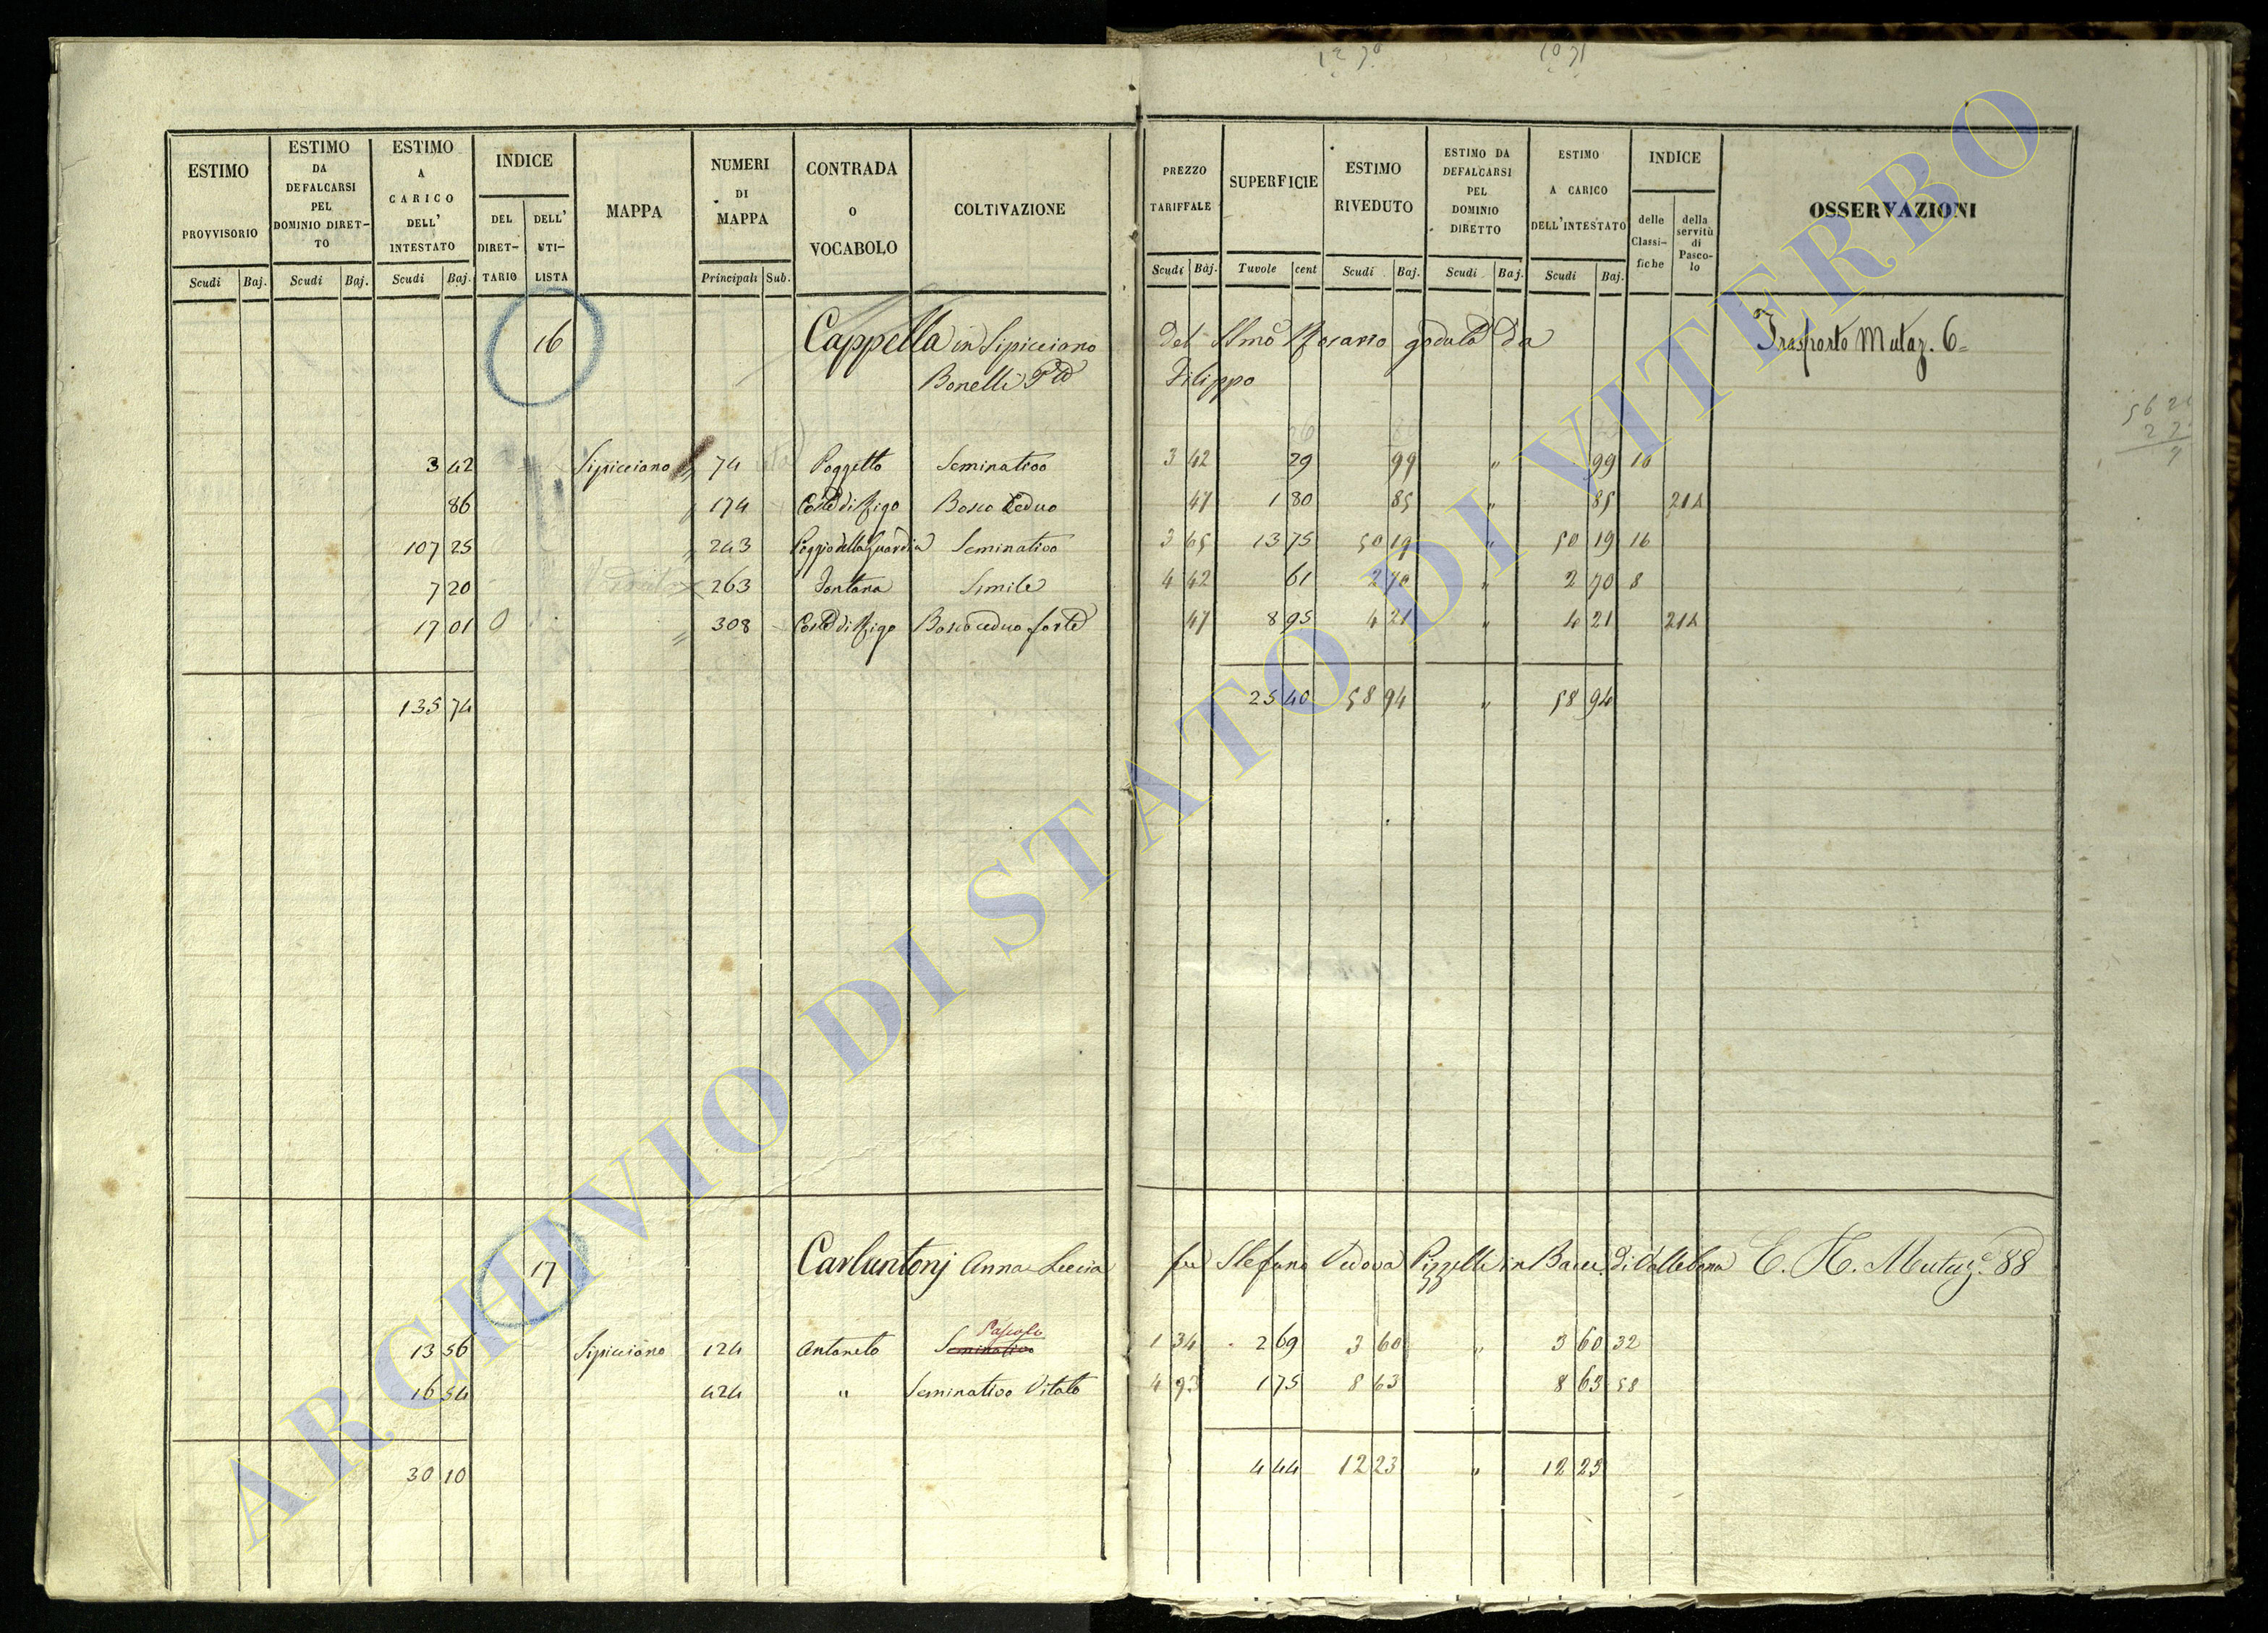 ESTIMO PROVVISORIO Scudi Baj.
ESTIMO DA DEFALCARSI PEL DOMINIO DIRET-TO Scudi Baj.
ESTIMO A CARICO DELL' INTESTATO Scudi Baj.
INDICE DEL DIRET-TARIO DELL' UTI-LISTA
MAPPA
NUMERI DI MAPPA Principali Sub.
CONTRADA O VOCABOLO
COLTIVAZIONE
PREZZO TARIFFALE Scudi Baj.
SUPERFICIE Tavole cent
ESTIMO RIVEDUTO Scudi Baj.
ESTIMO DA DEFALCARSI PEL DOMINIO DIRETTO Scudi Baj.
ESTIMO A CARICO DELL'INTESTATO Scudi Baj.
INDICE delle Classi-fiche della servitù di Pasco-lo
OSSERVAZIONI
16 Cappella in Sipicciano del SSmo Rosario goduta da Trasporto Mutaz. 6=
Bonelli Filippo
3 42 Sipicciano 74 Poggetto Seminativo 3 42 29 99 " 99 16
86 174 Coste di Rigo Bosco Ceduo 47 1 80 85 " 85 214
107 25 243 Poggio della Guardia Seminativo 3 65 13 75 50 19 " 50 19 16
7 20 263 Fontana Simile 4 42 61 2 70 " 2 70 8
17 01 308 Coste di Rigo Bosco ceduo forte 47 8 95 4 21 " 4 21 214
135 74 25 40 58 94 " 58 94
17 Carlantonj Anna Lucia fu Stefano Vedova Pizzelli in Bacci di Vallebona E. H. Mutaz. 88
Pascolo
13 56 Sipicciano 124 Antoneto Seminativo 1 34 2 69 3 60 " 3 60 32
16 54 424 " Seminativo Vitato 4 93 1 75 8 63 8 63 58
30 10 4 44 12 23 " 12 23
ARCHIVIO DI STATO DI VITERBO